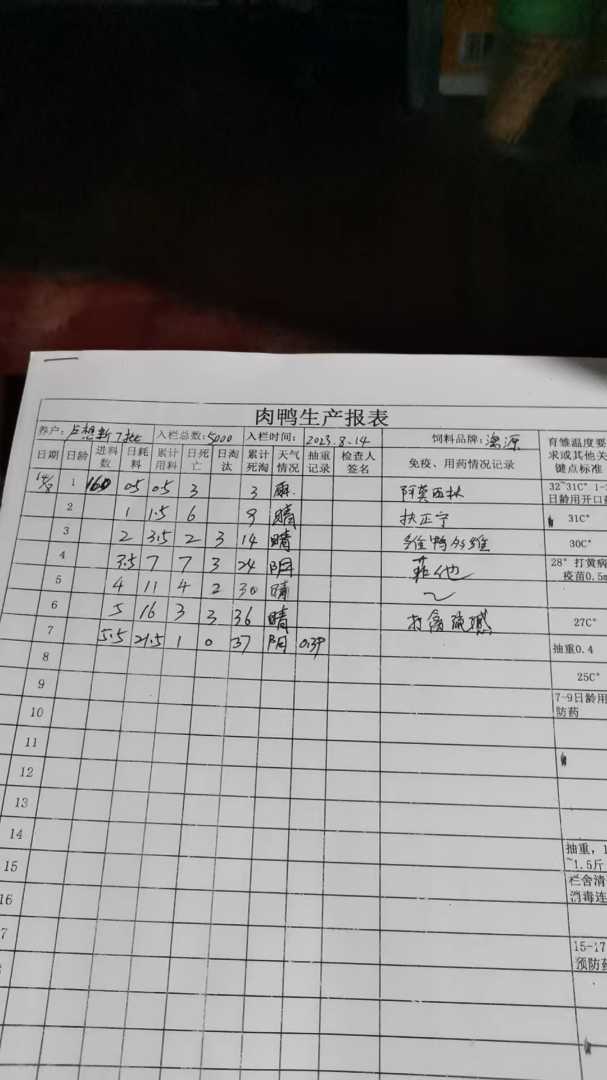 肉鸭生产报表
养户: 卢想新7批 入栏总数:5000 入栏时间: 2023.8.14 饲料品牌: 育雏温度要求或其他关键点标准
日期 日龄 进料数 日耗料 累计用料 日死亡 日淘汰 累计死淘 天气情况 抽重记录 检查人签名 免疫、用药情况记录
14/8 1 160 0.5 0.5 3 3 雨 阿莫西林 32~31C° 1-
日龄用开口
2 1 1.5 6 9 晴 扶正宁 31C°
3 2 3.5 2 3 14 晴 30C°
4 3.5 7 7 3 24 阴 28° 打黄病
疫苗0.5m
5 4 11 4 2 30 晴
6 5 16 3 3 36 晴 27C°
7 5.5 21.5 1 0 37 阴 0.39 抽重0.4
8 25C°
9 7-9日龄用
防药
10
11
12
13
14 抽重,1
~1.5斤
15 栏舍清
消毒连
16
7 15-17
预防药